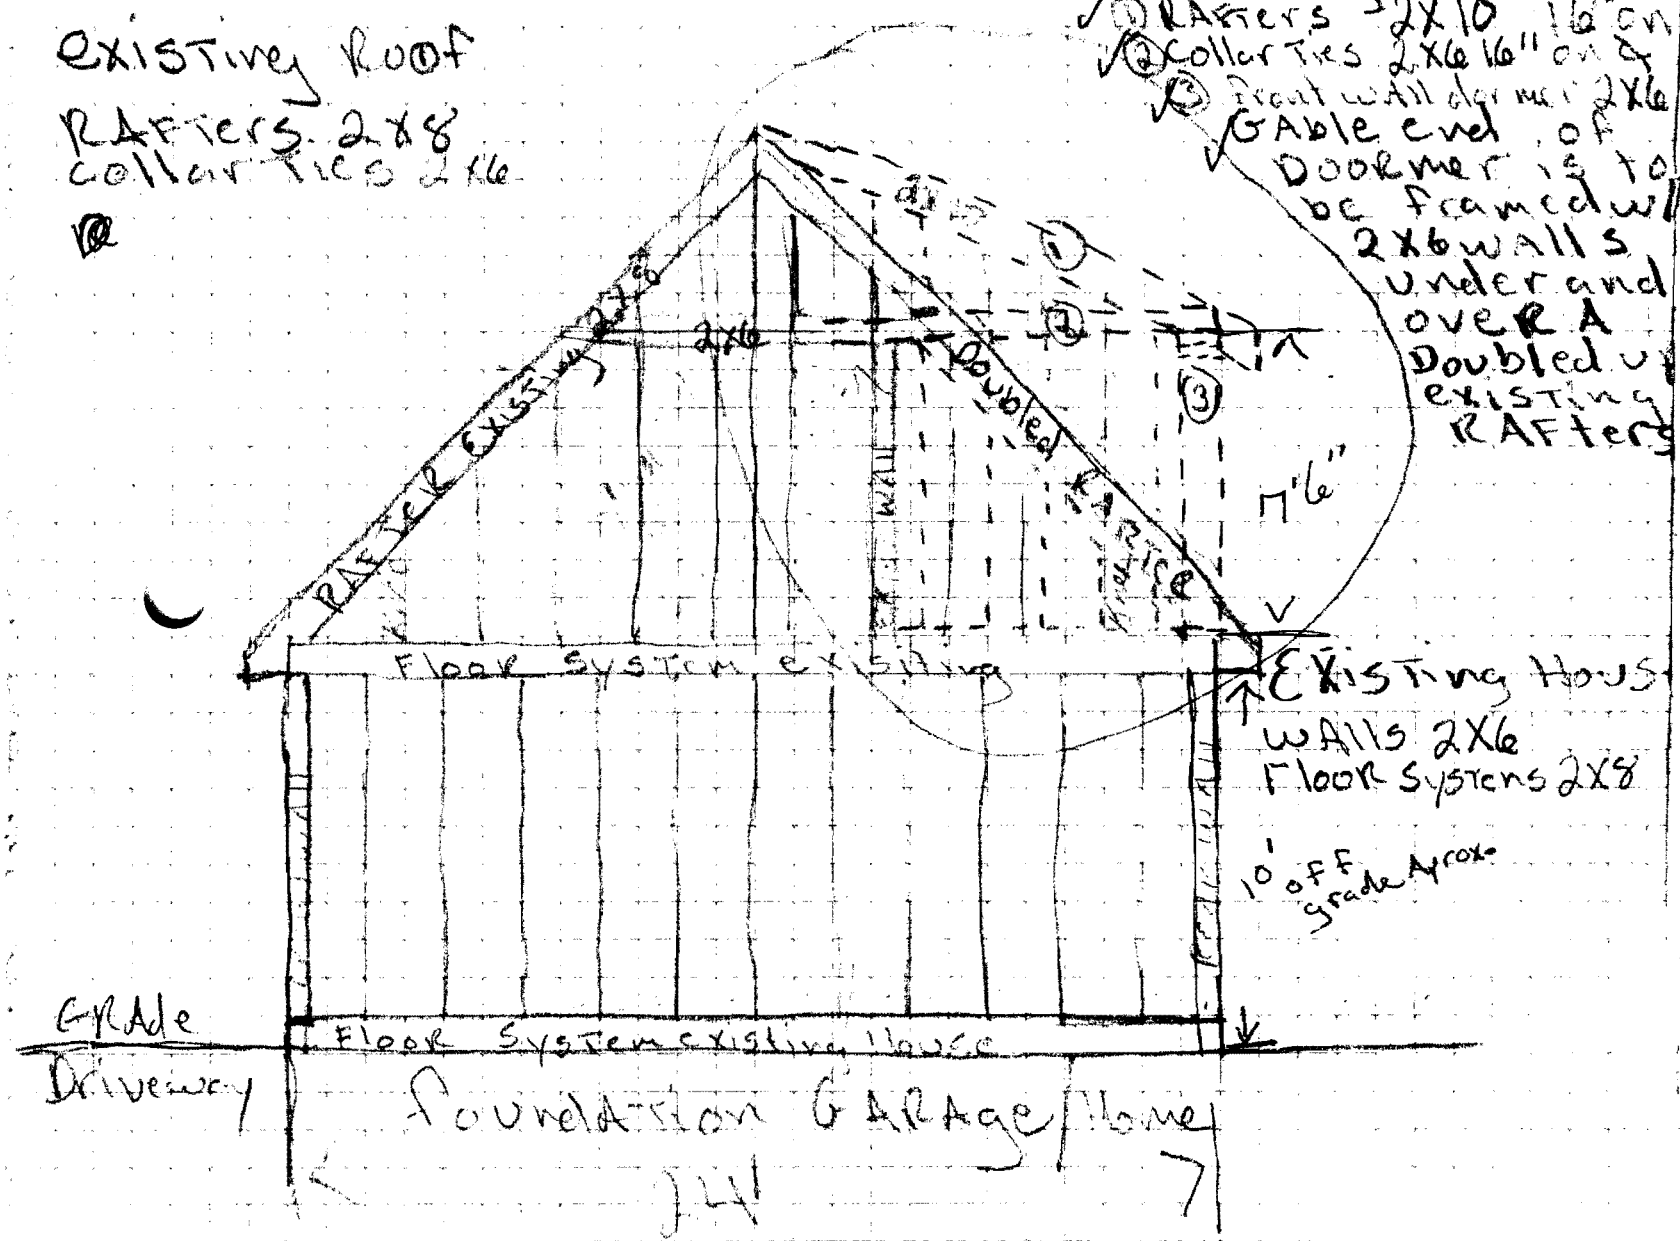 existing Roof
RAFTers 2x8
collar Ties 2x6
① RAFTers 2x10 16" on
② Collar Ties 2x6 16" on ¢
③ Front wall dormer 2x6
GAble end of
DOORmer is to
be framed w/
2x6 walls
under and
oveR A
Doubled u
existing
RAFters
①
②
③
2x6
RAFTER existing 2x8
Doubled RAFTER
wall
7'6"
Floor System existing
Existing Hous
wAlls 2x6
Floor Systems 2x8
10' off
grade Aprox.
GRAde
Driveway
Floor System existing House
foundation GARAge/Home
24'